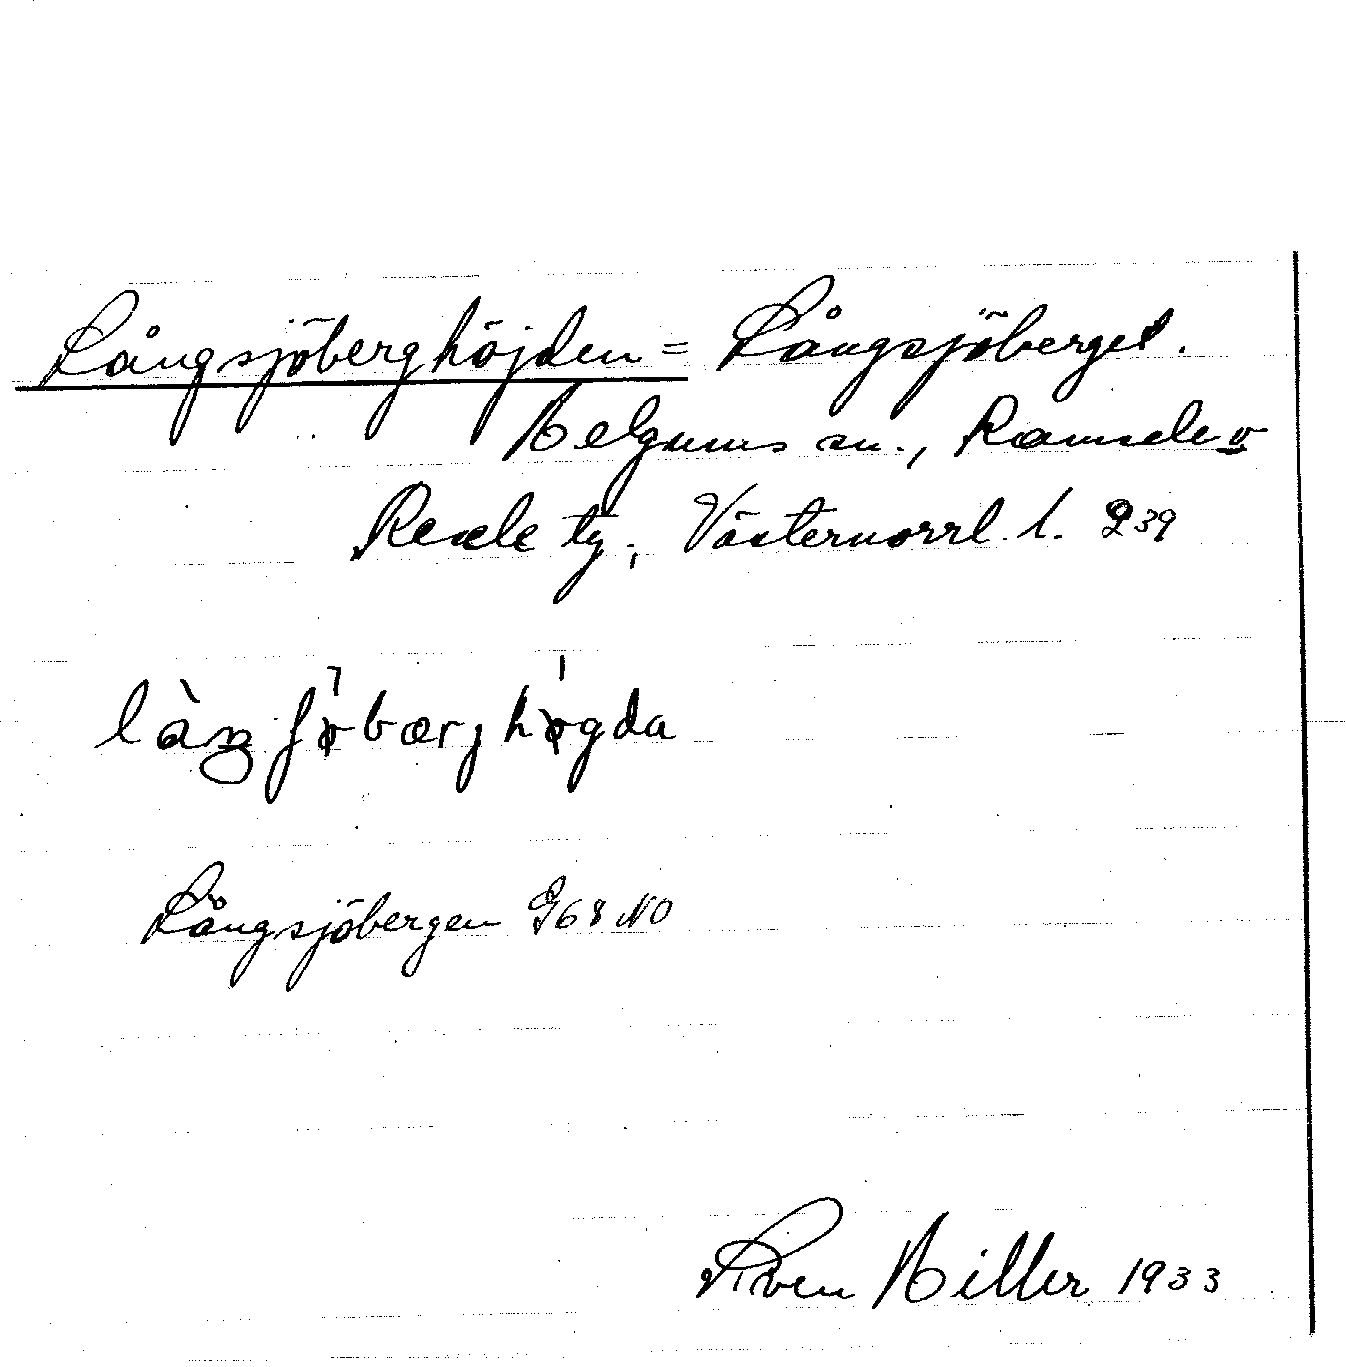 Långsjöberghöjden = Långsjöberget.
Helgums sn., Ramsele o
Resele tg, Västernorrl. l. 239
làŋʃø̄bærjhøgda
Långsjöbergen G68 NO
Sven Hiller 1933